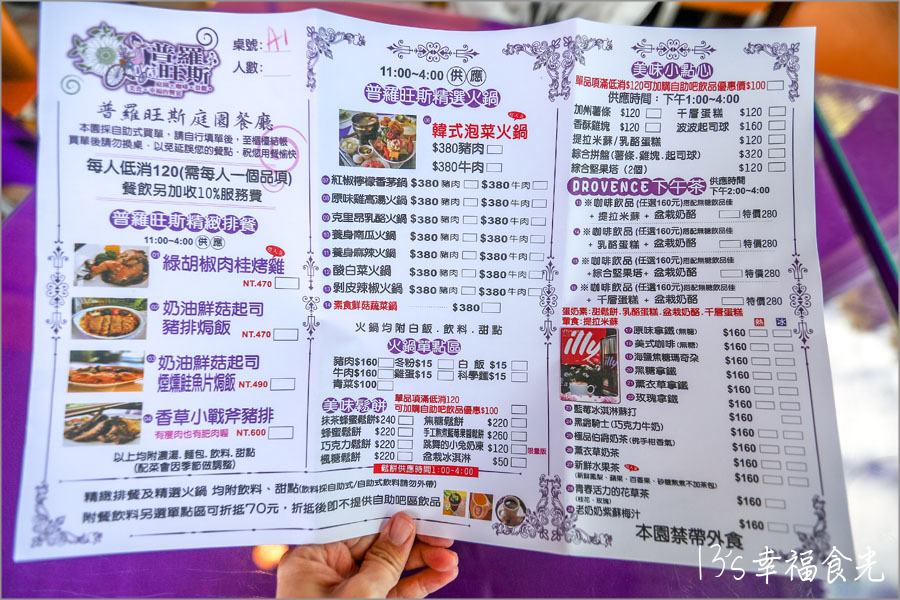 普羅旺斯
桌號: A1
人數:
普羅旺斯庭園餐廳
本園採自助式買單，請自行填單後，至櫃檯結帳
買單後請勿換桌，以免延誤您的餐點，祝您用餐愉快
每人低消120(需每人一個品項)
餐飲另加收10%服務費
普羅旺斯精緻排餐
11:00~4:00 供應
01 綠胡椒肉桂烤雞
NT.470
02 奶油鮮菇起司
豬排焗飯 NT.470
03 奶油鮮菇起司
煙燻鮭魚片焗飯 NT.490
04 香草小戰斧豬排
有瘦肉也有肥肉喔 NT.600
以上均附濃湯.麵包.飲料.甜點
(配菜會因季節做調整)
11:00~4:00 供應
普羅旺斯精選火鍋
06 韓式泡菜火鍋
$380豬肉
$380牛肉
07 紅椒檸檬香茅鍋 $380 豬肉 $380牛肉
08 原味雞高湯火鍋 $380 豬肉 $380牛肉
09 克里昂乳酪火鍋 $380 豬肉 $380牛肉
10 養身南瓜火鍋 $380 豬肉 $380牛肉
11 養身麻辣火鍋 $380 豬肉 $380牛肉
12 酸白菜火鍋 $380 豬肉 $380牛肉
13 剝皮辣椒火鍋 $380 豬肉 $380牛肉
14 素食鮮菇蔬菜鍋 $380
火鍋均附白飯.飲料.甜點
火鍋單點區
豬肉$160 冬粉$15 白飯 $15
牛肉$160 雞蛋$15 科學麵$15
青菜$100
美味鬆餅 單品項滿低消120
可加購自助吧飲品優惠$100
抹茶蜂蜜鬆餅$240 焦糖鬆餅 $220
蜂蜜鬆餅 $220 手工熬煮藍莓果醬鬆餅 $260
巧克力鬆餅 $220 跳舞的小兔奶凍 $120 限量版
楓糖鬆餅 $220 盆栽冰淇淋 $50
鬆餅供應時間1:00~4:00
精緻排餐及精選火鍋 均附飲料、甜點(飲料採自助式/自助式飲料請勿外帶)
附餐飲料另選單點區可折抵70元，折抵後即不提供自助吧區飲品
美味小點心
單品項滿低消$120可加購自助吧飲品優惠價$100
供應時間：下午1:00~4:00
加州薯條 $120 千層蛋糕 $120
香酥雞塊 $120 波波起司球 $160
提拉米蘇/乳酪蛋糕 $120
綜合拼盤(薯條.雞塊.起司球) $320
綜合堅果塔（2個） $120
PROVENCE下午茶 供應時間
下午2:00~4:00
※咖啡飲品(任選160元)搭配無糖飲品佳
+ 提拉米蘇 + 盆栽奶酪 特價280
※咖啡飲品(任選160元)搭配無糖飲品佳
+ 乳酪蛋糕 + 盆栽奶酪 特價280
※咖啡飲品(任選160元)搭配無糖飲品佳
+綜合堅果塔+ 盆栽奶酪 特價280
※咖啡飲品(任選160元)搭配無糖飲品佳
+ 千層蛋糕 + 盆栽奶酪 特價280
蛋奶素:甜鬆餅.乳酪蛋糕.盆栽奶酪.千層蛋糕
葷食:提拉米蘇
熱 冰
illy
17 原味拿鐵(無糖) $160
18 美式咖啡(無糖) $160
19 海鹽焦糖瑪奇朵 $160
20 黑糖拿鐵 $160
21 薰衣草拿鐵 $160
22 玫瑰拿鐵 $160
23 藍莓冰淇淋蘇打 $160
24 黑爵騎士(巧克力牛奶) $160
25 極品伯爵奶茶(佛手柑香氣) $160
26 薰衣草奶茶 $160
27 新鮮水果茶 $160
(新鮮鳳梨、蘋果、百香果、砂糖熬煮不加茶包)
28 青春活力的花草茶 $160
(桂花、玫瑰)
29 老奶奶紫蘇梅汁 $160
本園禁帶外食
13's幸福食光